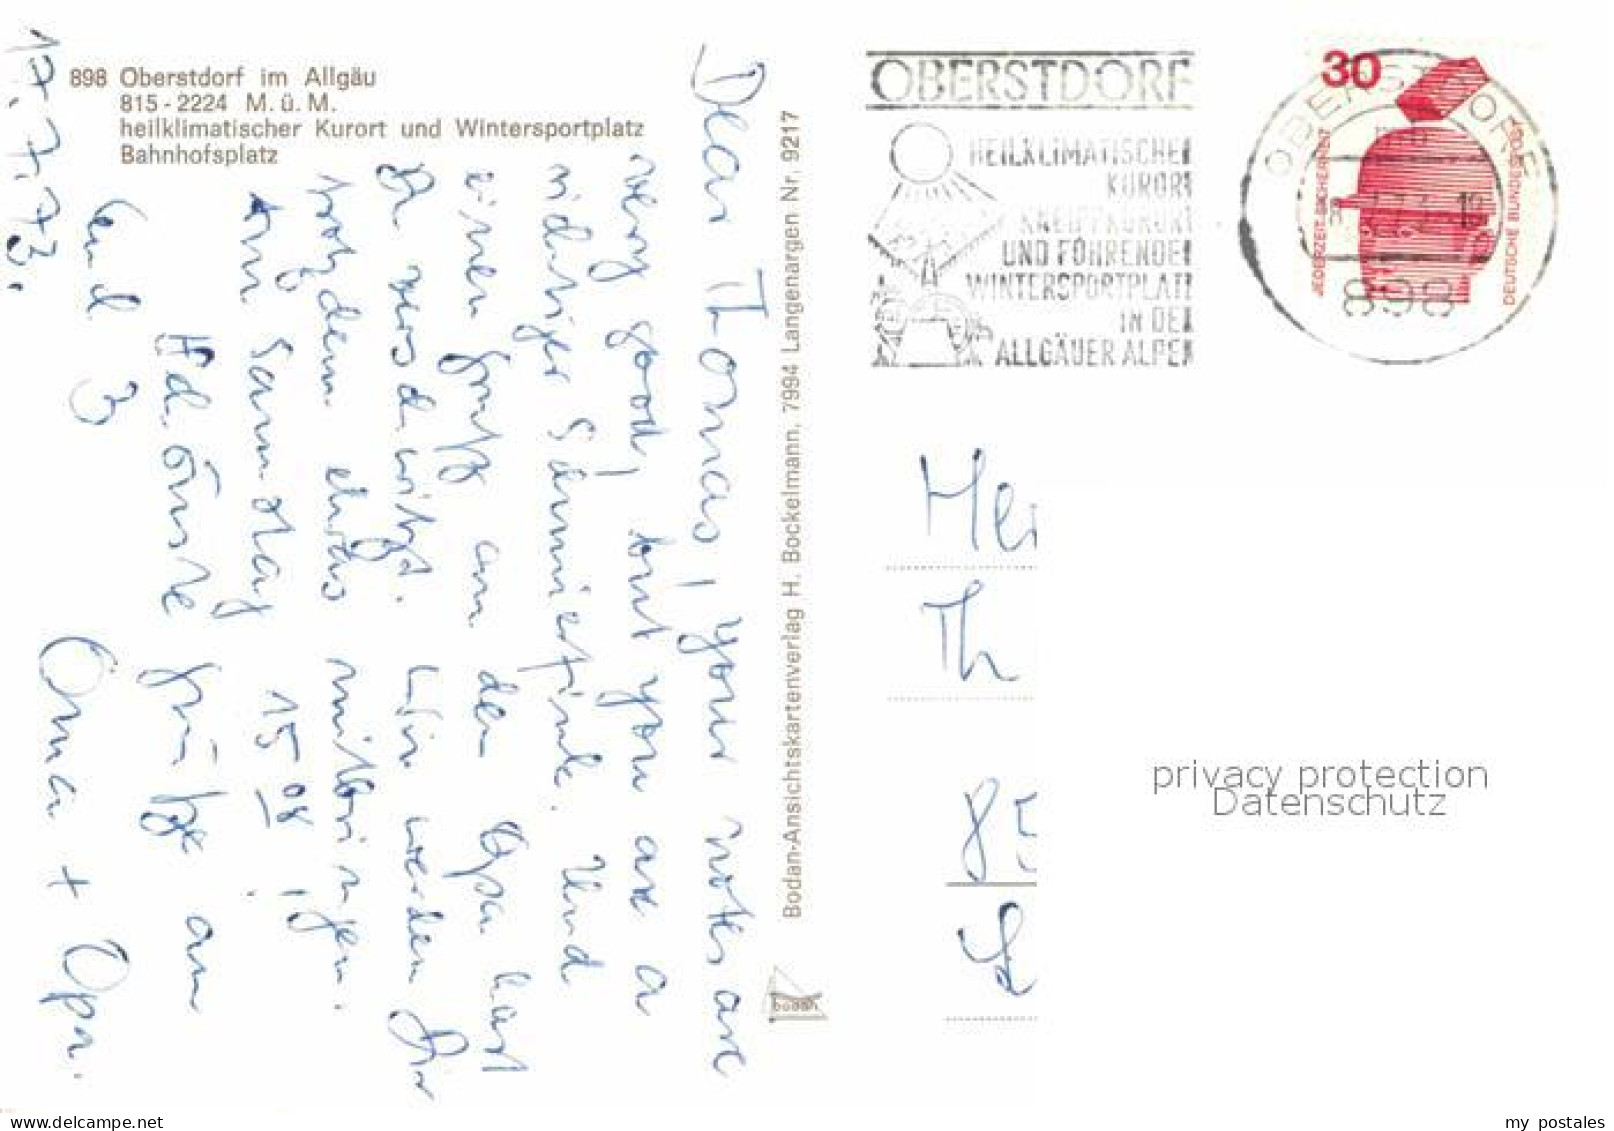 898 Oberstdorf im Allgäu
815 - 2224 M. ü. M.
heilklimatischer Kurort und Wintersportplatz
Bahnhofsplatz
17.7.73.
Dear Thomas, your notes are
very good, but you are a
Und
einen Gruß an den Opa hast
Du verschwitzt. Wir werden Dir
trotzdem etwas mitbringen.
Am Samstag 15 08,
grüße an
Emil 3
Oma + Opa.
Bodan-Ansichtskartenverlag H. Bockelmann, 7994 Langenargen Nr. 9217
bodan
OBERSTDORF
HEILKLIMATISCHER
KURORT
KNEIPPKURORT
UND FÜHRENDER
WINTERSPORTPLATZ
IN DEN
ALLGÄUER ALPEN
30
JEDERZEIT SICHERHEIT
DEUTSCHE BUNDESPOST
OBERSTDORF
898
Hei
Th
85
privacy protection
Datenschutz
www.ansichtskartenversand.com
my postales